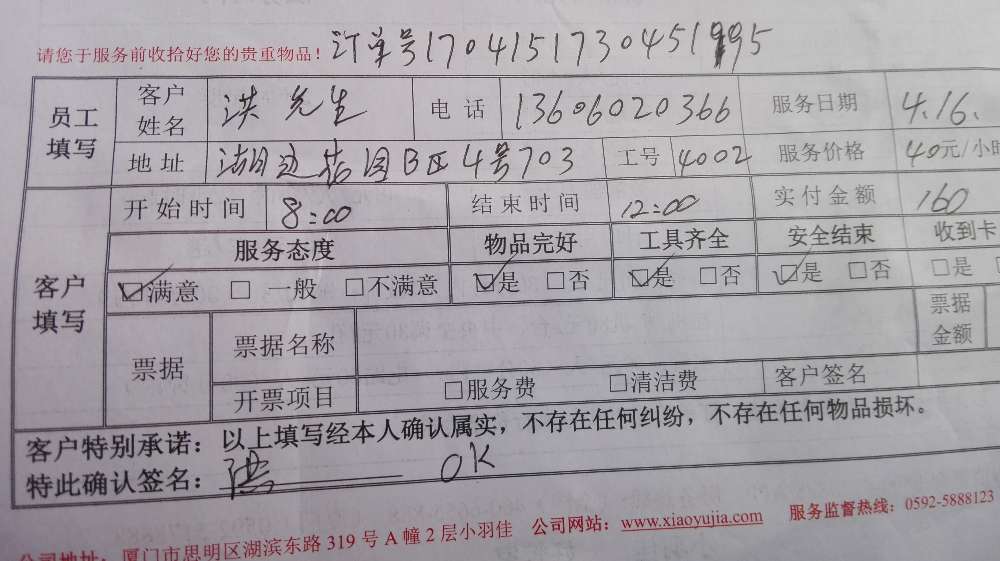 请您于服务前收拾好您的贵重物品！ 订单号1704151730451995
员工填写 客户姓名 洪先生 电话 13606020366 服务日期 4.16.
地址 湖边花园B区4号703 工号 4002 服务价格 40元/小时
客户填写 开始时间 8:00 结束时间 12:00 实付金额 160
服务态度 物品完好 工具齐全 安全结束 收到卡
☑满意 □ 一般 □不满意 ☑是 □否 ☑是 □否 ☑是 □否 □是
票据 票据名称 票据金额
开票项目 □服务费 □清洁费 客户签名
客户特别承诺：以上填写经本人确认属实，不存在任何纠纷，不存在任何物品损坏。
特此确认签名：洪 OK
公司地址：厦门市思明区湖滨东路 319 号 A 幢 2 层小羽佳 公司网站：www.xiaoyujia.com 服务监督热线：0592-5888123